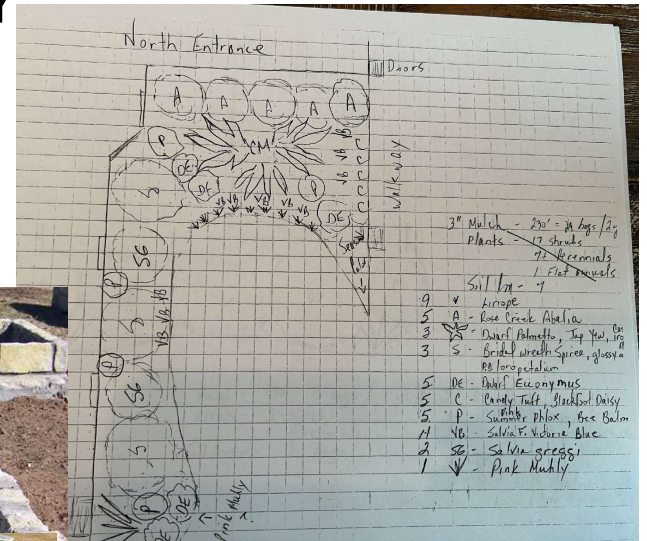 Y
North Entrance
Doors
A A A A A
P CM VB C
DE VB C
S DE P VB C
VB VB VB VB VB C
DE
Walkway
SG
P
S VB VB VB
P
SG
S
P DE
DE
Pink Muhly
3" Mulch - 230' = 24 bags/2
Plants - 17 shrubs
Perennials
1 Flat annuals
Soil
9 Liriope
5 A - Rose Creek Abelia
3 - Dwarf Palmetto, Jap Yew,
3 S - Bridal wreath Spirea, glossy a
loropetalum
5 DE - Dwarf Euonymus
5 C - Candy Tuft, Blackfoot Daisy
5 P - Summer Phlox, Bee Balm
Pink
14 VB - Salvia F. Victoria Blue
2 SG - Salvia greggi
1 - Pink Muhly